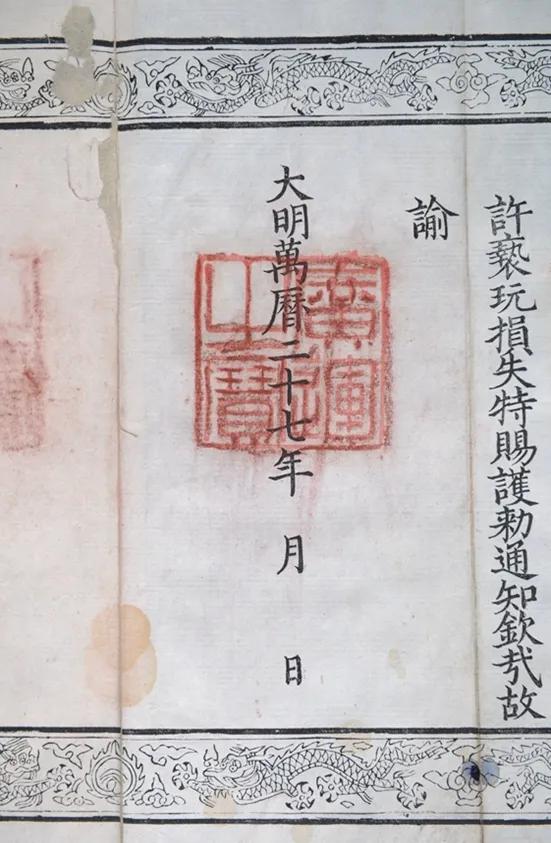 許褻玩損失特賜護勅通知欽哉故
諭
大明萬曆二十七年 月 日
廣運之寶